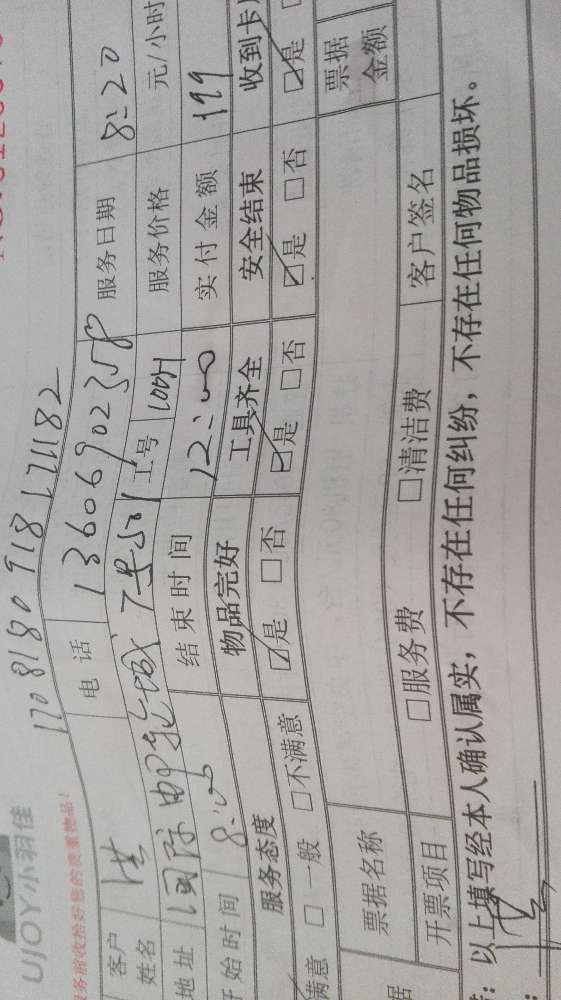 UJOY小羽佳
1708180918171182
客户姓名 洪 电话 13606902358 服务日期 8.20
地址 国际邮轮城7号501 工号 服务价格 元/小时
开始时间 8:00 结束时间 12:00 实付金额 199
服务态度 物品完好 工具齐全 安全结束 收到卡
满意 □ 一般 □不满意 ☑是 □否 ☑是 □否 ☑是 □否 ☑是
票据名称 票据金额
开票项目 □服务费 □清洁费 客户签名
以上填写经本人确认属实，不存在任何纠纷，不存在任何物品损坏。